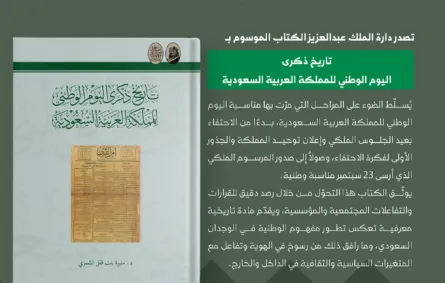 تصدر دارة الملك عبدالعزيز الكتاب الموسوم بـ
تاريخ ذكرى
اليوم الوطني للمملكة العربية السعودية
يُسلّط الضوء على المراحل التي مرّت بها مناسبة اليوم
الوطني للمملكة العربية السعودية، بدءًا من الاحتفاء
بعيد الجلوس الملكي وإعلان توحيد المملكة والجذور
الأولى لفكرة الاحتفاء، وصولاً إلى صدور المرسوم الملكي
الذي أرسى 23 سبتمبر مناسبة وطنية.
يوثّق الكتاب هذا التحوّل من خلال رصد دقيق للقرارات
والتفاعلات المجتمعية والمؤسسية، ويقدّم مادة تاريخية
معرفية تعكس تطور مفهوم الوطنية في الوجدان
السعودي، وما رافق ذلك من رسوخ في الهوية وتفاعل مع
المتغيرات السياسية والثقافية في الداخل والخارج.
تاريخ ذكرى اليوم الوطني
للمملكة العربية السعودية